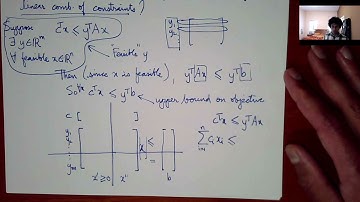 linear comb. of constraints)
Suppose
∃ y∈ℝᵐ
∀ feasible x∈ℝⁿ
cᵀx ≤ yᵀAx
"Feasible" y
y₁
y₂
Then (since x is feasible), yᵀAx ≤ yᵀb
So cᵀx ≤ yᵀb
upper bound on objective
c [ ]
y₁
yₘ
x
≤
=
b
x'≥0 x"
cᵀx ≤ yᵀAx
∑ⁿᵢ₌₁ cᵢxᵢ ≤